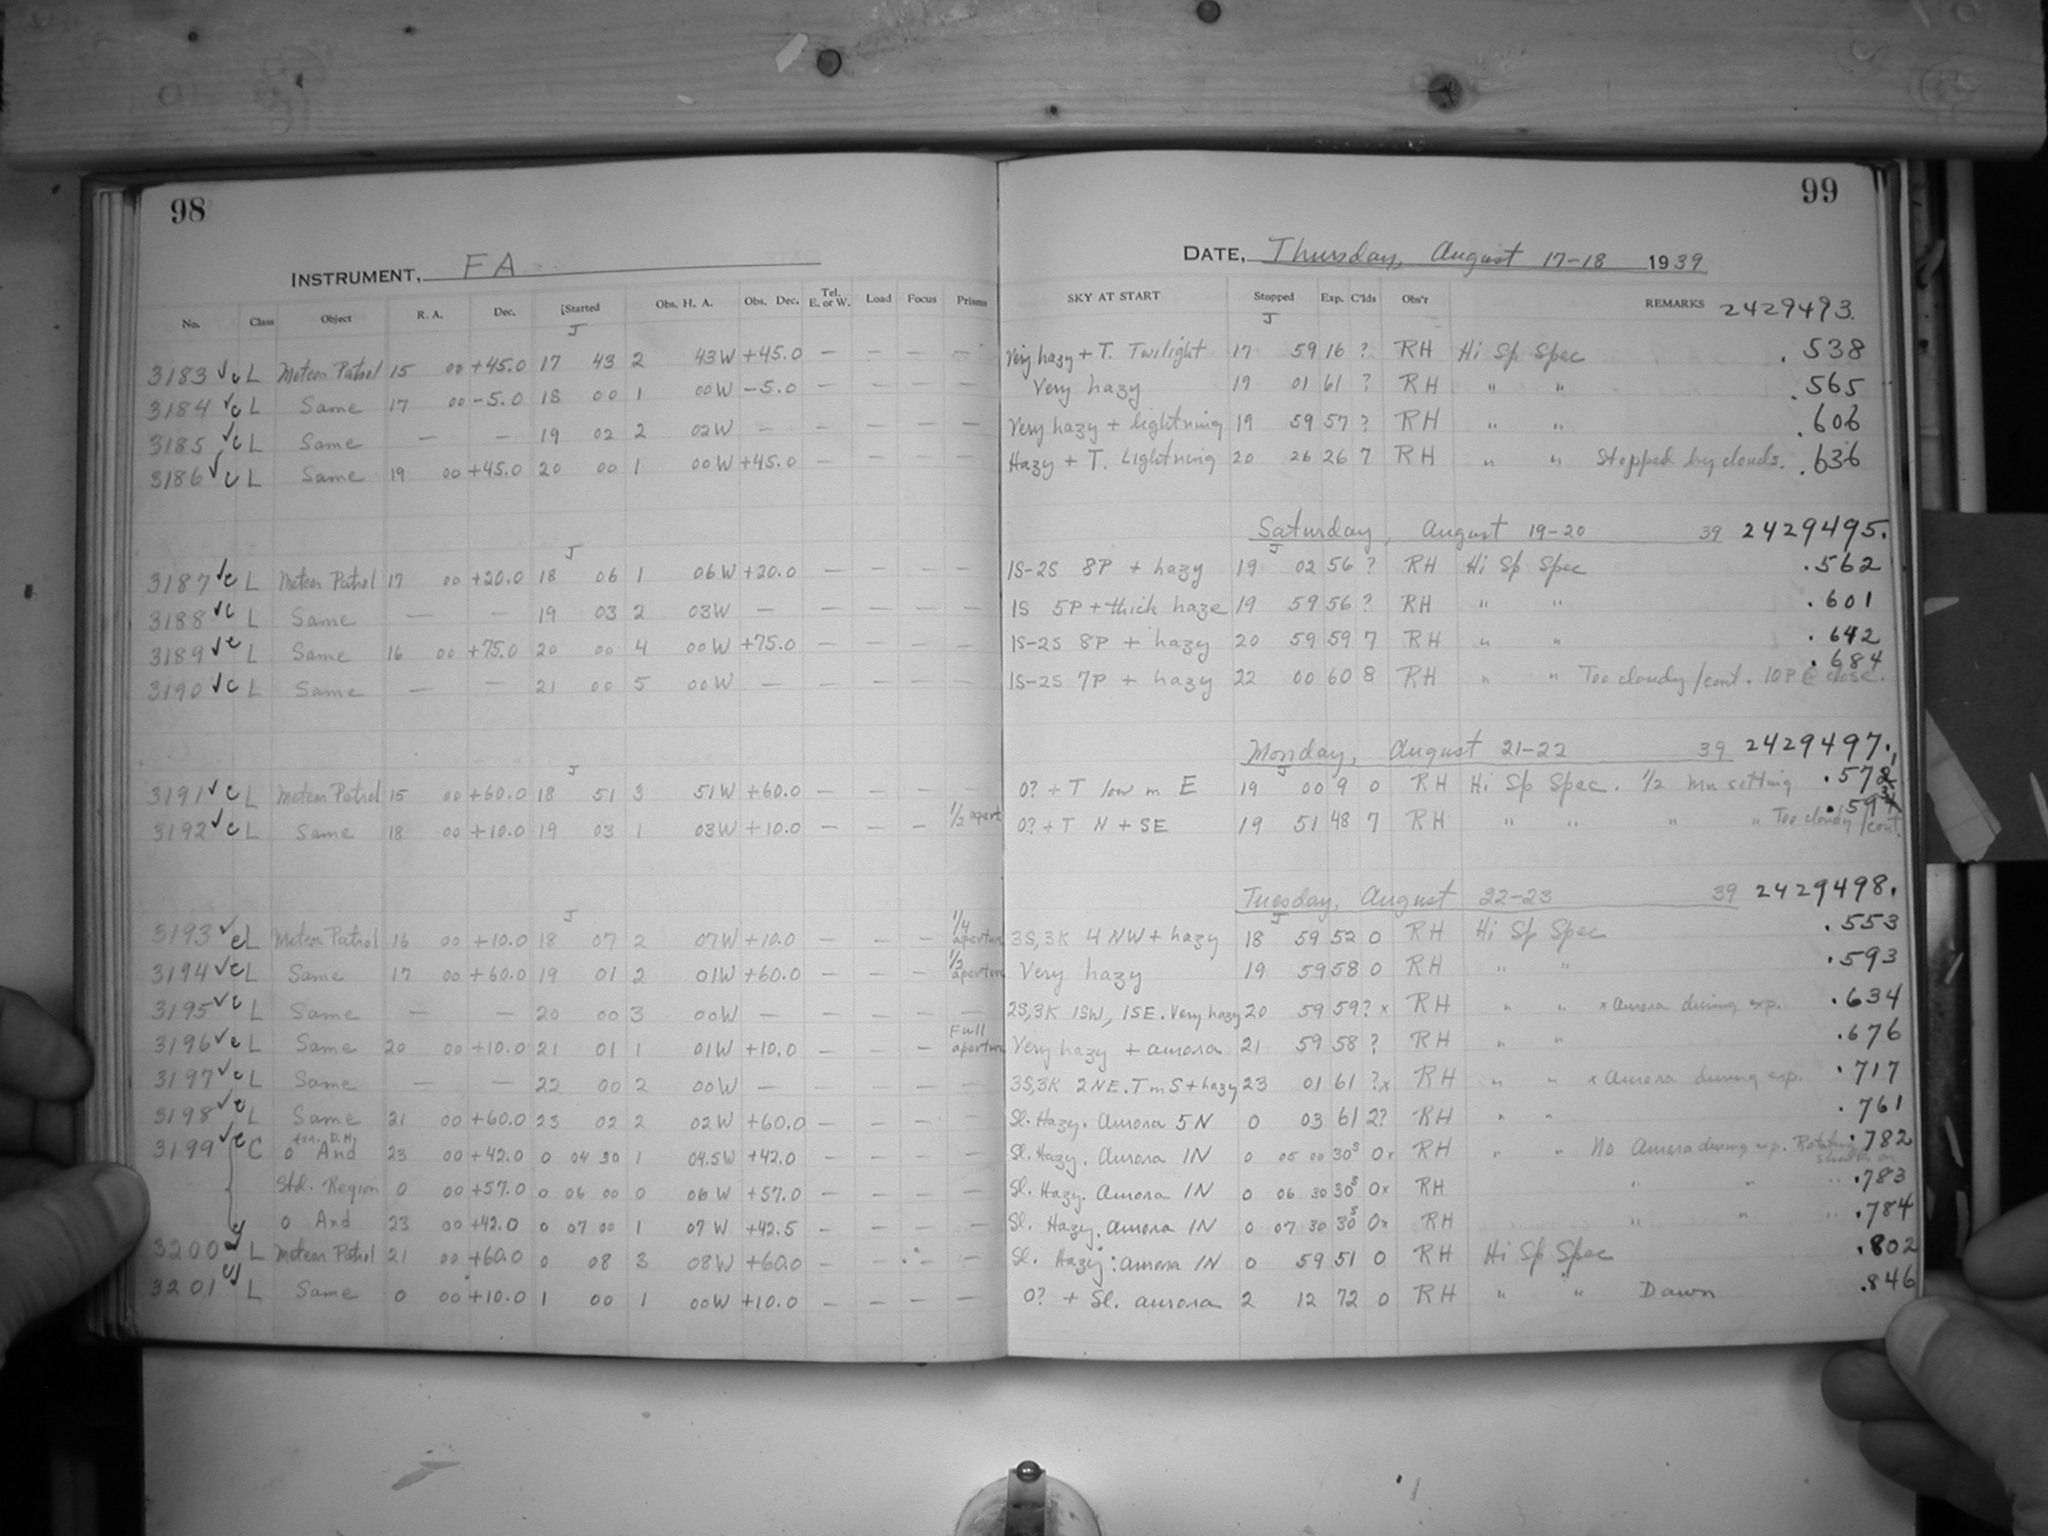 98
INSTRUMENT, FA
No. Class Object R. A. Dec. Started Obs. H. A. Obs. Dec. Tel. E. or W. Load Focus Prisms
J
3183 ✓c L Meteor Patrol 15 00 +45.0 17 43 2 43W +45.0 — — — —
3184 ✓c L Same 17 00 -5.0 18 00 1 00W -5.0 — — — —
3185 ✓c L Same — — 19 02 2 02W — — — — —
3186 ✓c L Same 19 00 +45.0 20 00 1 00W +45.0 — — — —
J
3187 ✓c L Meteor Patrol 17 00 +20.0 18 06 1 06W +20.0 — — — —
3188 ✓c L Same — — 19 03 2 03W — — — — —
3189 ✓c L Same 16 00 +75.0 20 00 4 00W +75.0 — — — —
3190 ✓c L Same — — 21 00 5 00W — — — — —
J
3191 ✓c L Meteor Patrol 15 00 +60.0 18 51 3 51W +60.0 — — — —
3192 ✓c L Same 18 00 +10.0 19 03 1 03W +10.0 — — — 1/2 apert
J
3193 ✓c L Meteor Patrol 16 00 +10.0 18 07 2 07W +10.0 — — — 1/4 aperture
3194 ✓c L Same 17 00 +60.0 19 01 2 01W +60.0 — — — 1/2 aperture
3195 ✓c L Same — — 20 00 3 00W — — — — —
3196 ✓c L Same 20 00 +10.0 21 01 1 01W +10.0 — — — Full aperture
3197 ✓c L Same — — 22 00 2 00W — — — — —
3198 ✓c L Same 21 00 +60.0 23 02 2 02W +60.0 — — — —
3199 ✓c C o And 23 00 +42.0 0 04 30 1 04.5W +42.0 — — — —
Std. Region 0 00 +57.0 0 06 00 0 06 W +57.0 — — — —
o And 23 00 +42.0 0 07 00 1 07 W +42.5 — — — —
3200 L Meteor Patrol 21 00 +60.0 0 08 3 08W +60.0 — — — —
3201 L Same 0 00 +10.0 1 00 1 00W +10.0 — — — —
99
DATE, Thursday, August 17-18 1939
SKY AT START Stopped Exp. C'lds Obs'r REMARKS 2429493.
J
Very hazy + T. Twilight 17 59 16 ? RH Hi Sp Spec .538
Very hazy 19 01 61 ? RH " " .565
Very hazy + lightning 19 59 57 ? RH " " .606
Hazy + T. Lightning 20 26 26 7 RH " " Stopped by clouds. .636
Saturday, August 19-20 39 2429495.
J
1S-2S 8P + hazy 19 02 56 ? RH Hi Sp Spec .562
1S 5P + thick haze 19 59 56 ? RH " " .601
1S-2S 8P + hazy 20 59 59 7 RH " " .642
1S-2S 7P + hazy 22 00 60 8 RH " " Too cloudy/cont. 10P @ close. .684
Monday, August 21-22 39 2429497.
J
0? + T low in E 19 00 9 0 RH Hi Sp Spec. 1/2 mn setting .572
0? + T N + SE 19 51 48 7 RH " " " " Too cloudy/cont. .594
Tuesday, August 22-23 39 2429498.
J
3S, 3K 4 NW + hazy 18 59 52 0 RH Hi Sp Spec .553
Very hazy 19 59 58 0 RH " " .593
2S, 3K 1SW, 1SE. Very hazy 20 59 59 ? x RH " " x Aurora during exp. .634
Very hazy + aurora 21 59 58 ? RH " " .676
3S, 3K 2NE. T in S + hazy 23 01 61 ?x RH " " x Aurora during exp. .717
Sl. Hazy. Aurora 5N 0 03 61 2? RH " " .761
Sl. Hazy. Aurora 1N 0 05 00 30s 0x RH " " No Aurora during exp. Rotating .782
Sl. Hazy. Aurora 1N 0 06 30 30s 0x RH " " " .783
Sl. Hazy. Aurora 1N 0 07 30 30s 0x RH " " " .784
Sl. Hazy: aurora 1N 0 59 51 0 RH Hi Sp Spec .802
0? + Sl. aurora 2 12 72 0 RH " " Dawn .846